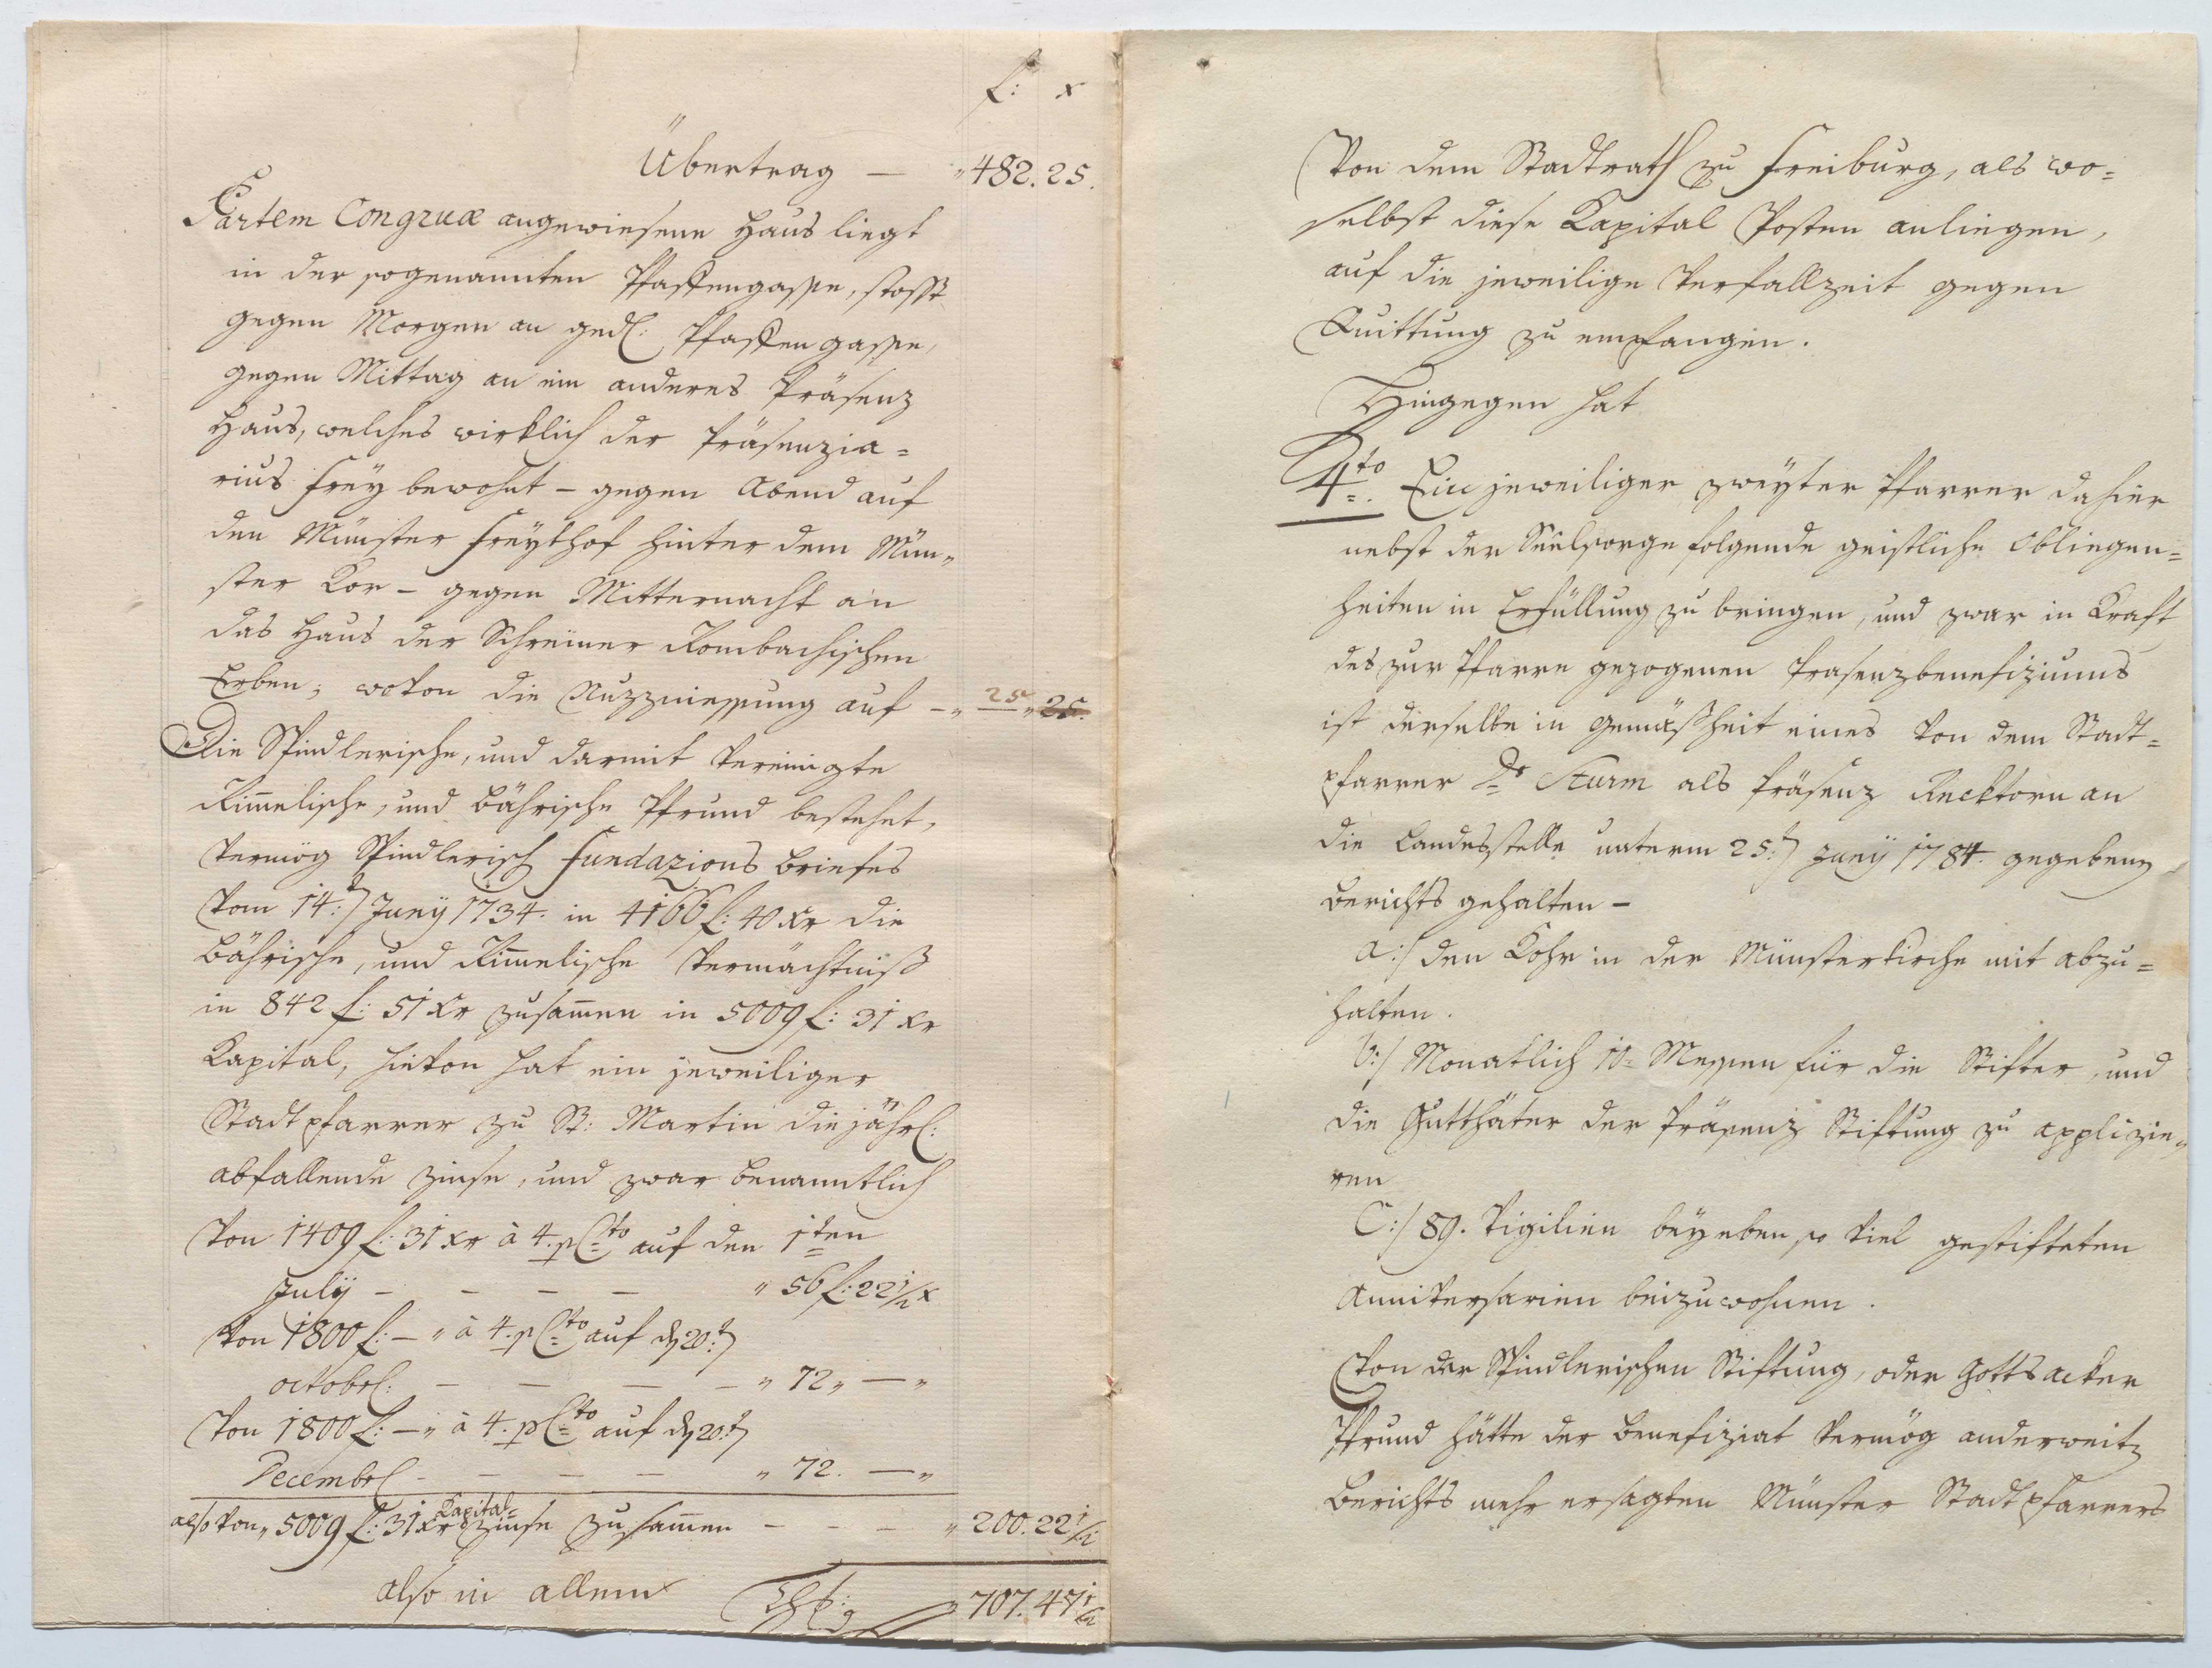 f: x
Übertrag — " 482. 25.
Partem Congruæ angewiesene Haus liegt
in der sogenannten Pfaffengasse, stoßt
gegen Morgen an gedl: Pfaffengasse,
gegen Mittag an ein anderes Präsenz
Haus, welches wirklich der Präsenzia=
rius Frey bewohnt – gegen Abend auf
den Münster Freythof hinter dem Mün=
ster Kor – gegen Mitternacht an
das Haus der Schreiner Rombachischen
Erben; wovon die Nuzzniessung auf – " 25 " 25.
Die Spindlerische, und darmit vereinigte
Rim̄elische, und Bährische Pfrund bestehet,
vermög Spindlerisch Fundazions Briefes
vom 14:t Juny 1734. in 4166 f: 40 xr die
Bährische, und Rim̄elische Vermächtniß
in 842 f: 51 xr zusam̄en in 5009 f: 31 xr
Kapital, hievon hat ein jeweiliger
Stadtpfarrer zu St: Martin die jährl:
abfallende Zinse, und zwar benanntlich
von 1409 f: 31 xr à 4. pCto auf den 1ten
July – – – – " 56 f: 22 1/2 x
von 1800 f: – " à 4. pCto auf d. 20:t
octobr: – – – – " 72 " — "
von 1800 f: – " à 4. pCto auf d. 20:t
Decembr – – – – " 72. — "
also von " 5009 f: 31 xr Kapital= Zinse zusam̄en – – – " 200. 22 1/2
also in allem " 707. 47 1/2
Von dem Stadtrath zu Freiburg, als wo=
selbst diese Kapital Posten anliegen,
auf die jeweilige Verfallzeit gegen
Quittung zu empfangen.
Hingegen hat
4to Ein jeweiliger zweyter Pfarrer dahier
nebst der Seelsorge folgende geistliche Obliegen=
heiten in Erfüllung zu bringen, und zwar in Kraft
des zur Pfarre gezogenen Präsenzbenefiziums
ist derselbe in Gemäßheit eines von dem Stadt=
pfarrer Dr Sturm als Präsenz Recktorn an
die Landesstelle unterm 25:t Juny 1784. gegebenen
Berichts gehalten –
a:/ den Kohr in der Münsterkirche mit abzu=
halten.
b:/ Monatlich 10 Messen für die Stifter, und
die Gutthäter der Präsenz Stiftung zu applizie=
ren
C:/ 89. Vigilien bey eben so viel gestifteten
Anniversarien beizuwohnen.
Von der Spindlerischen Stiftung, oder Gottsacker
Pfrund hätte der Benefiziat vermög anderweitn
Berichts mehr ersagten Münster Stadtpfarrers